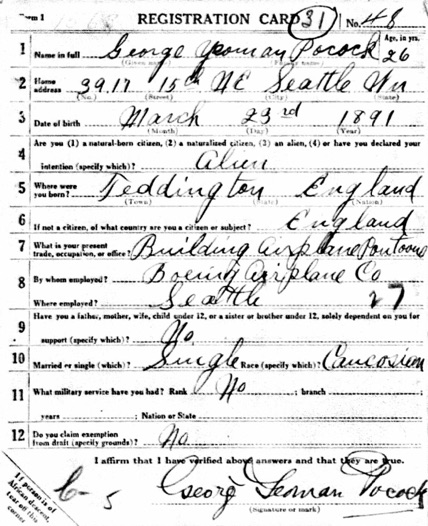 Form 1 REGISTRATION CARD 31 No. 48
1 Name in full George Yeoman Pocock Age, in yrs. 26
(Given name) (Family name)
2 Home address 3917 15th NE Seattle Wn
(No.) (Street) (City) (State)
3 Date of birth March 23rd 1891
(Month) (Day) (Year)
4 Are you (1) a natural-born citizen, (2) a naturalized citizen, (3) an alien, (4) or have you declared your
intention (specify which)? Alien
5 Where were you born? Teddington England
(Town) (State) (Nation)
6 If not a citizen, of what country are you a citizen or subject? England
7 What is your present trade, occupation, or office? Building Airplane Pontoons
8 By whom employed? Boeing Airplane Co
Where employed? Seattle 27
9 Have you a father, mother, wife, child under 12, or a sister or brother under 12, solely dependent on you for
support (specify which)? No
10 Married or single (which)? Single Race (specify which)? Caucasian
11 What military service have you had? Rank No ; branch ;
years ; Nation or State
12 Do you claim exemption from draft (specify grounds)? No
I affirm that I have verified above answers and that they are true.
6-5 George Yeoman Pocock
(Signature or mark)
If person is of African descent, tear off this corner